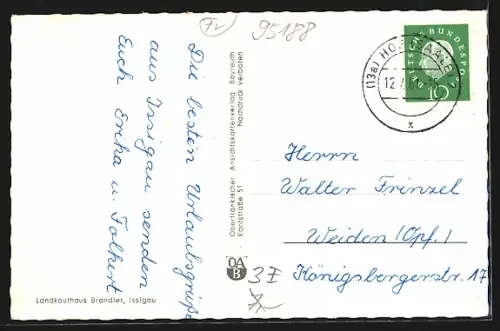 Die besten Urlaubsgrüße
aus Issigau senden
Euch Erika u. Folkert
Landkaufhaus Brandler, Issigau
Oberfränkischer Ansichtskartenverlag Bayreuth
Kantstraße 51 Nachdruck verboten
OA
B
95188
3 I
DEUTSCHE BUNDESPOST
10
(13a) HOF (SAALE)
x
Herrn
Walter Frinzel
Weiden (Opf.)
Königsbergerstr. 17